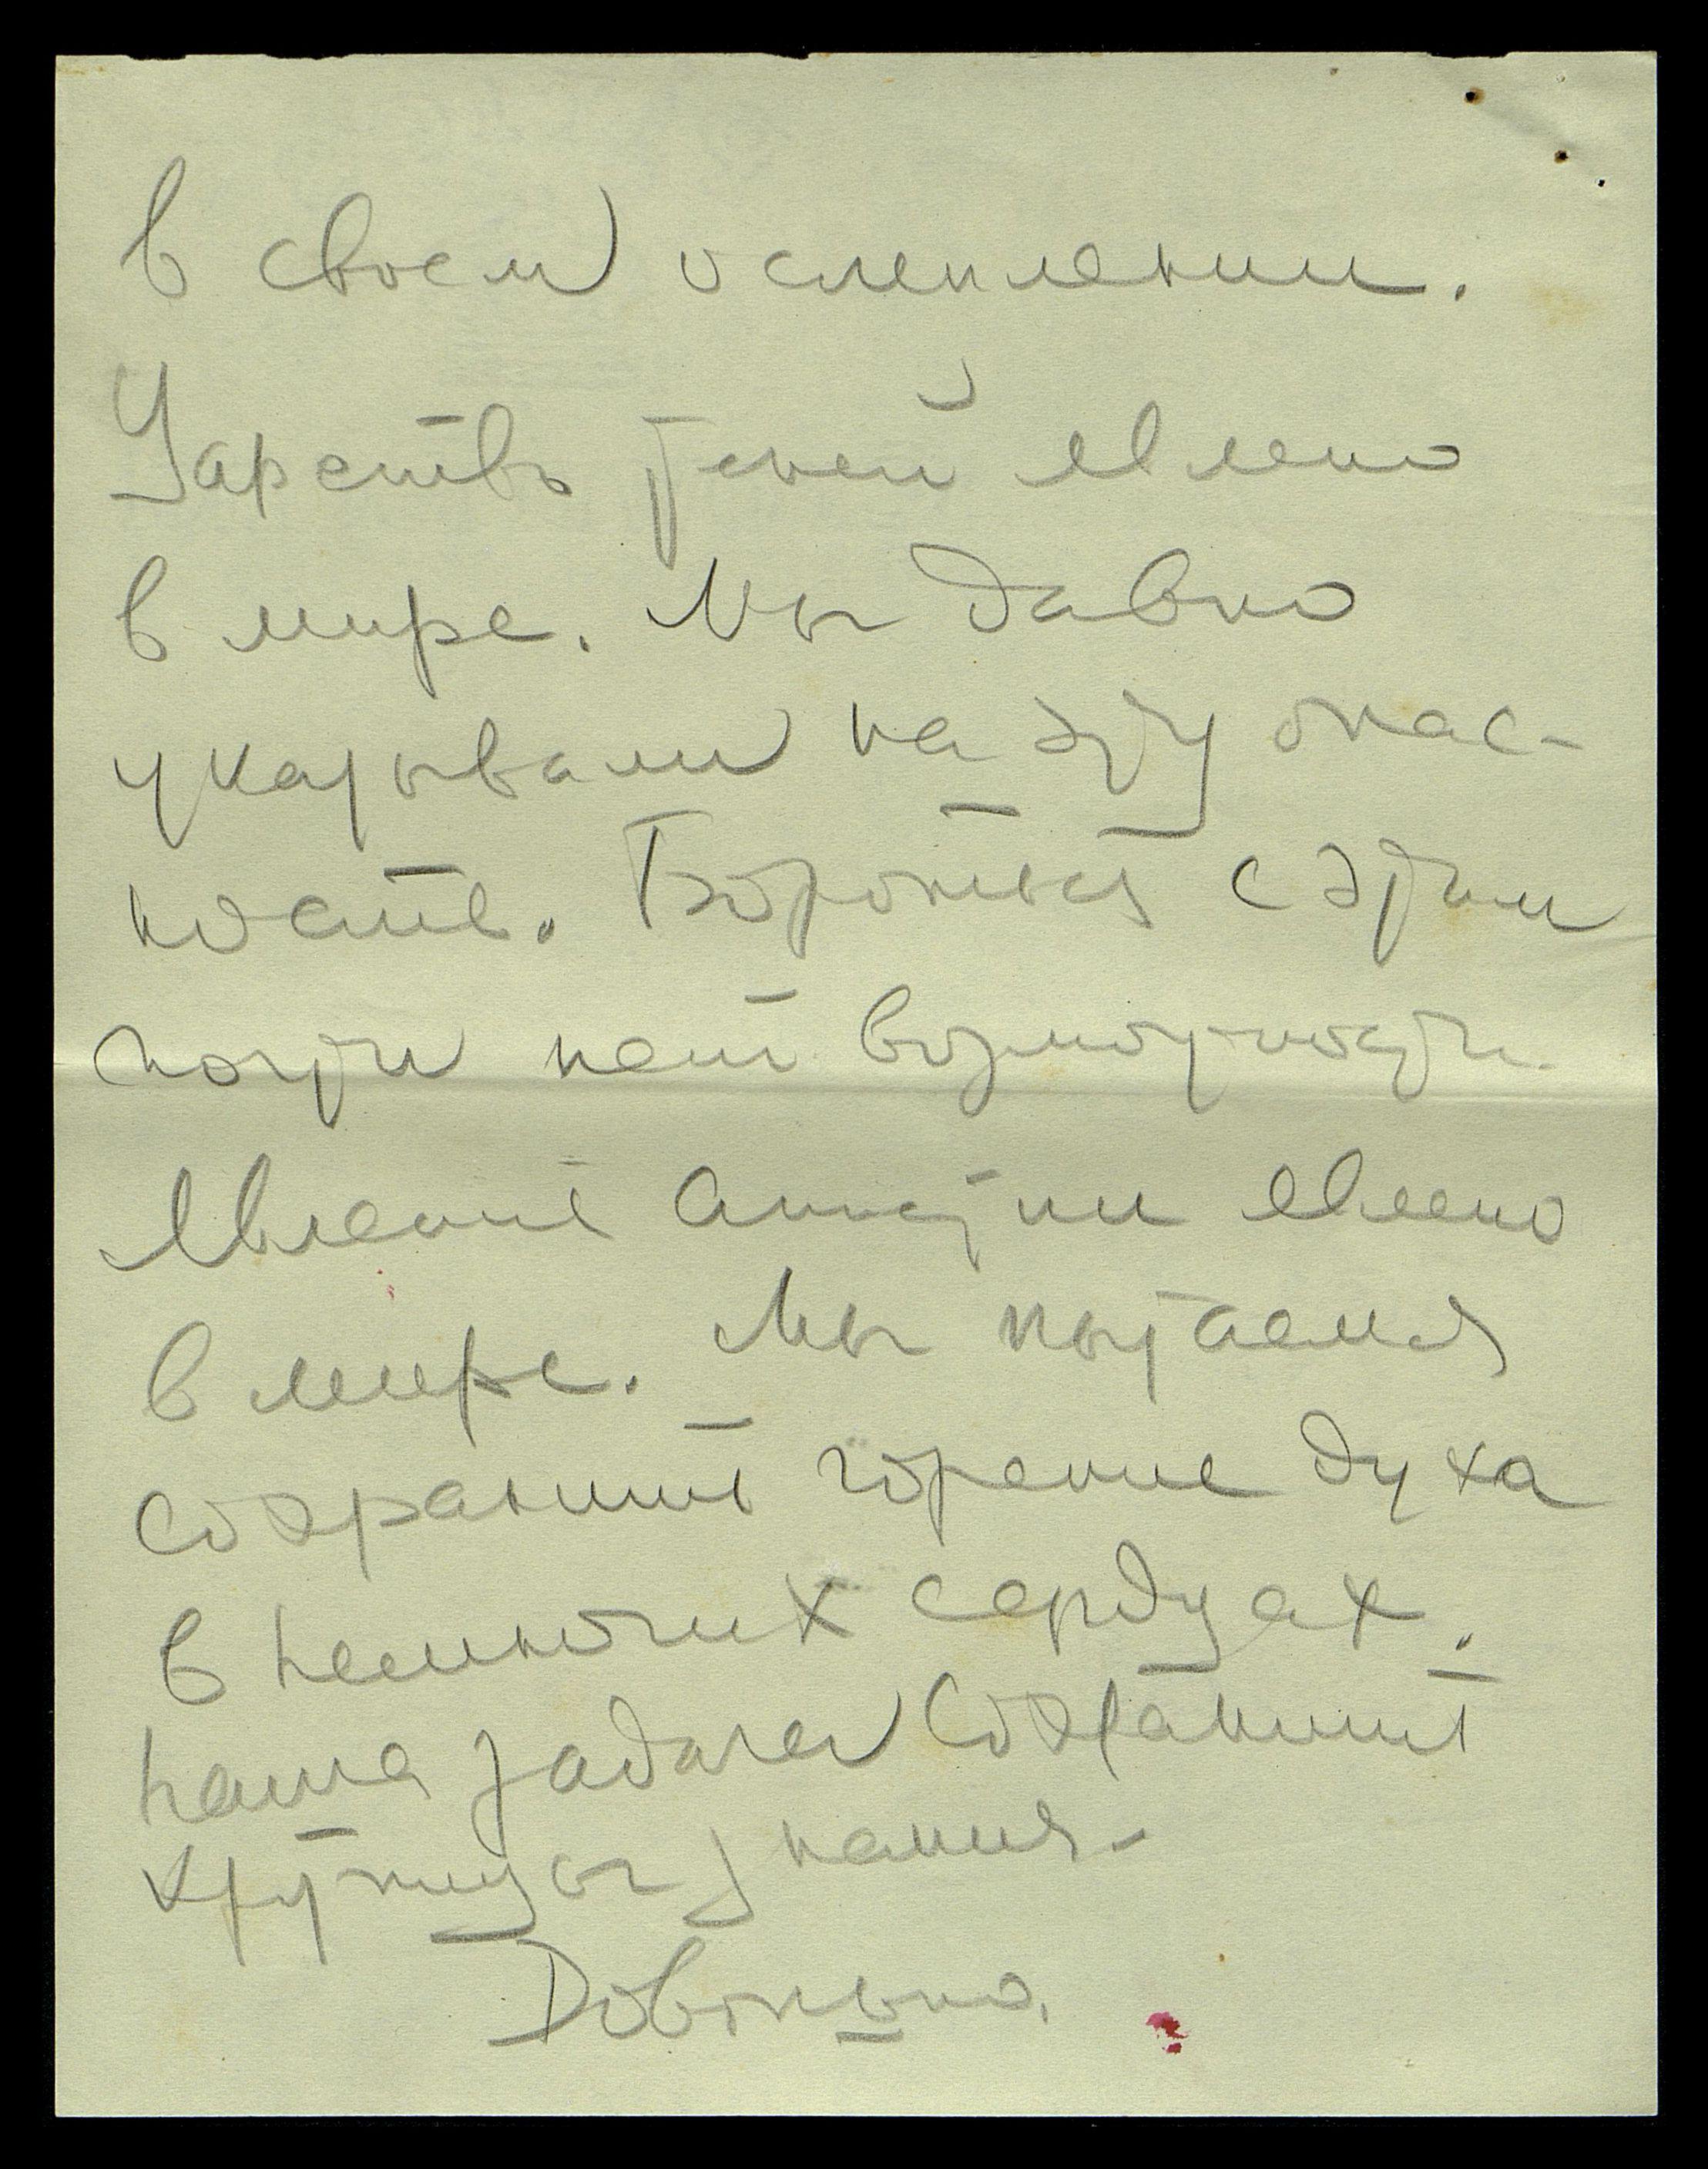 в своем ослеплении.
Царство теней явлено
в мире. Мы давно
указывали на эту опас-
ность. Бороться с этим
почти нет возможности.
Явление апатии явлено
в мире. Мы пытаемся
сохранить горение духа
в немногих сердцах.
Наша задача сохранить
крупицы знания.
Довольно.